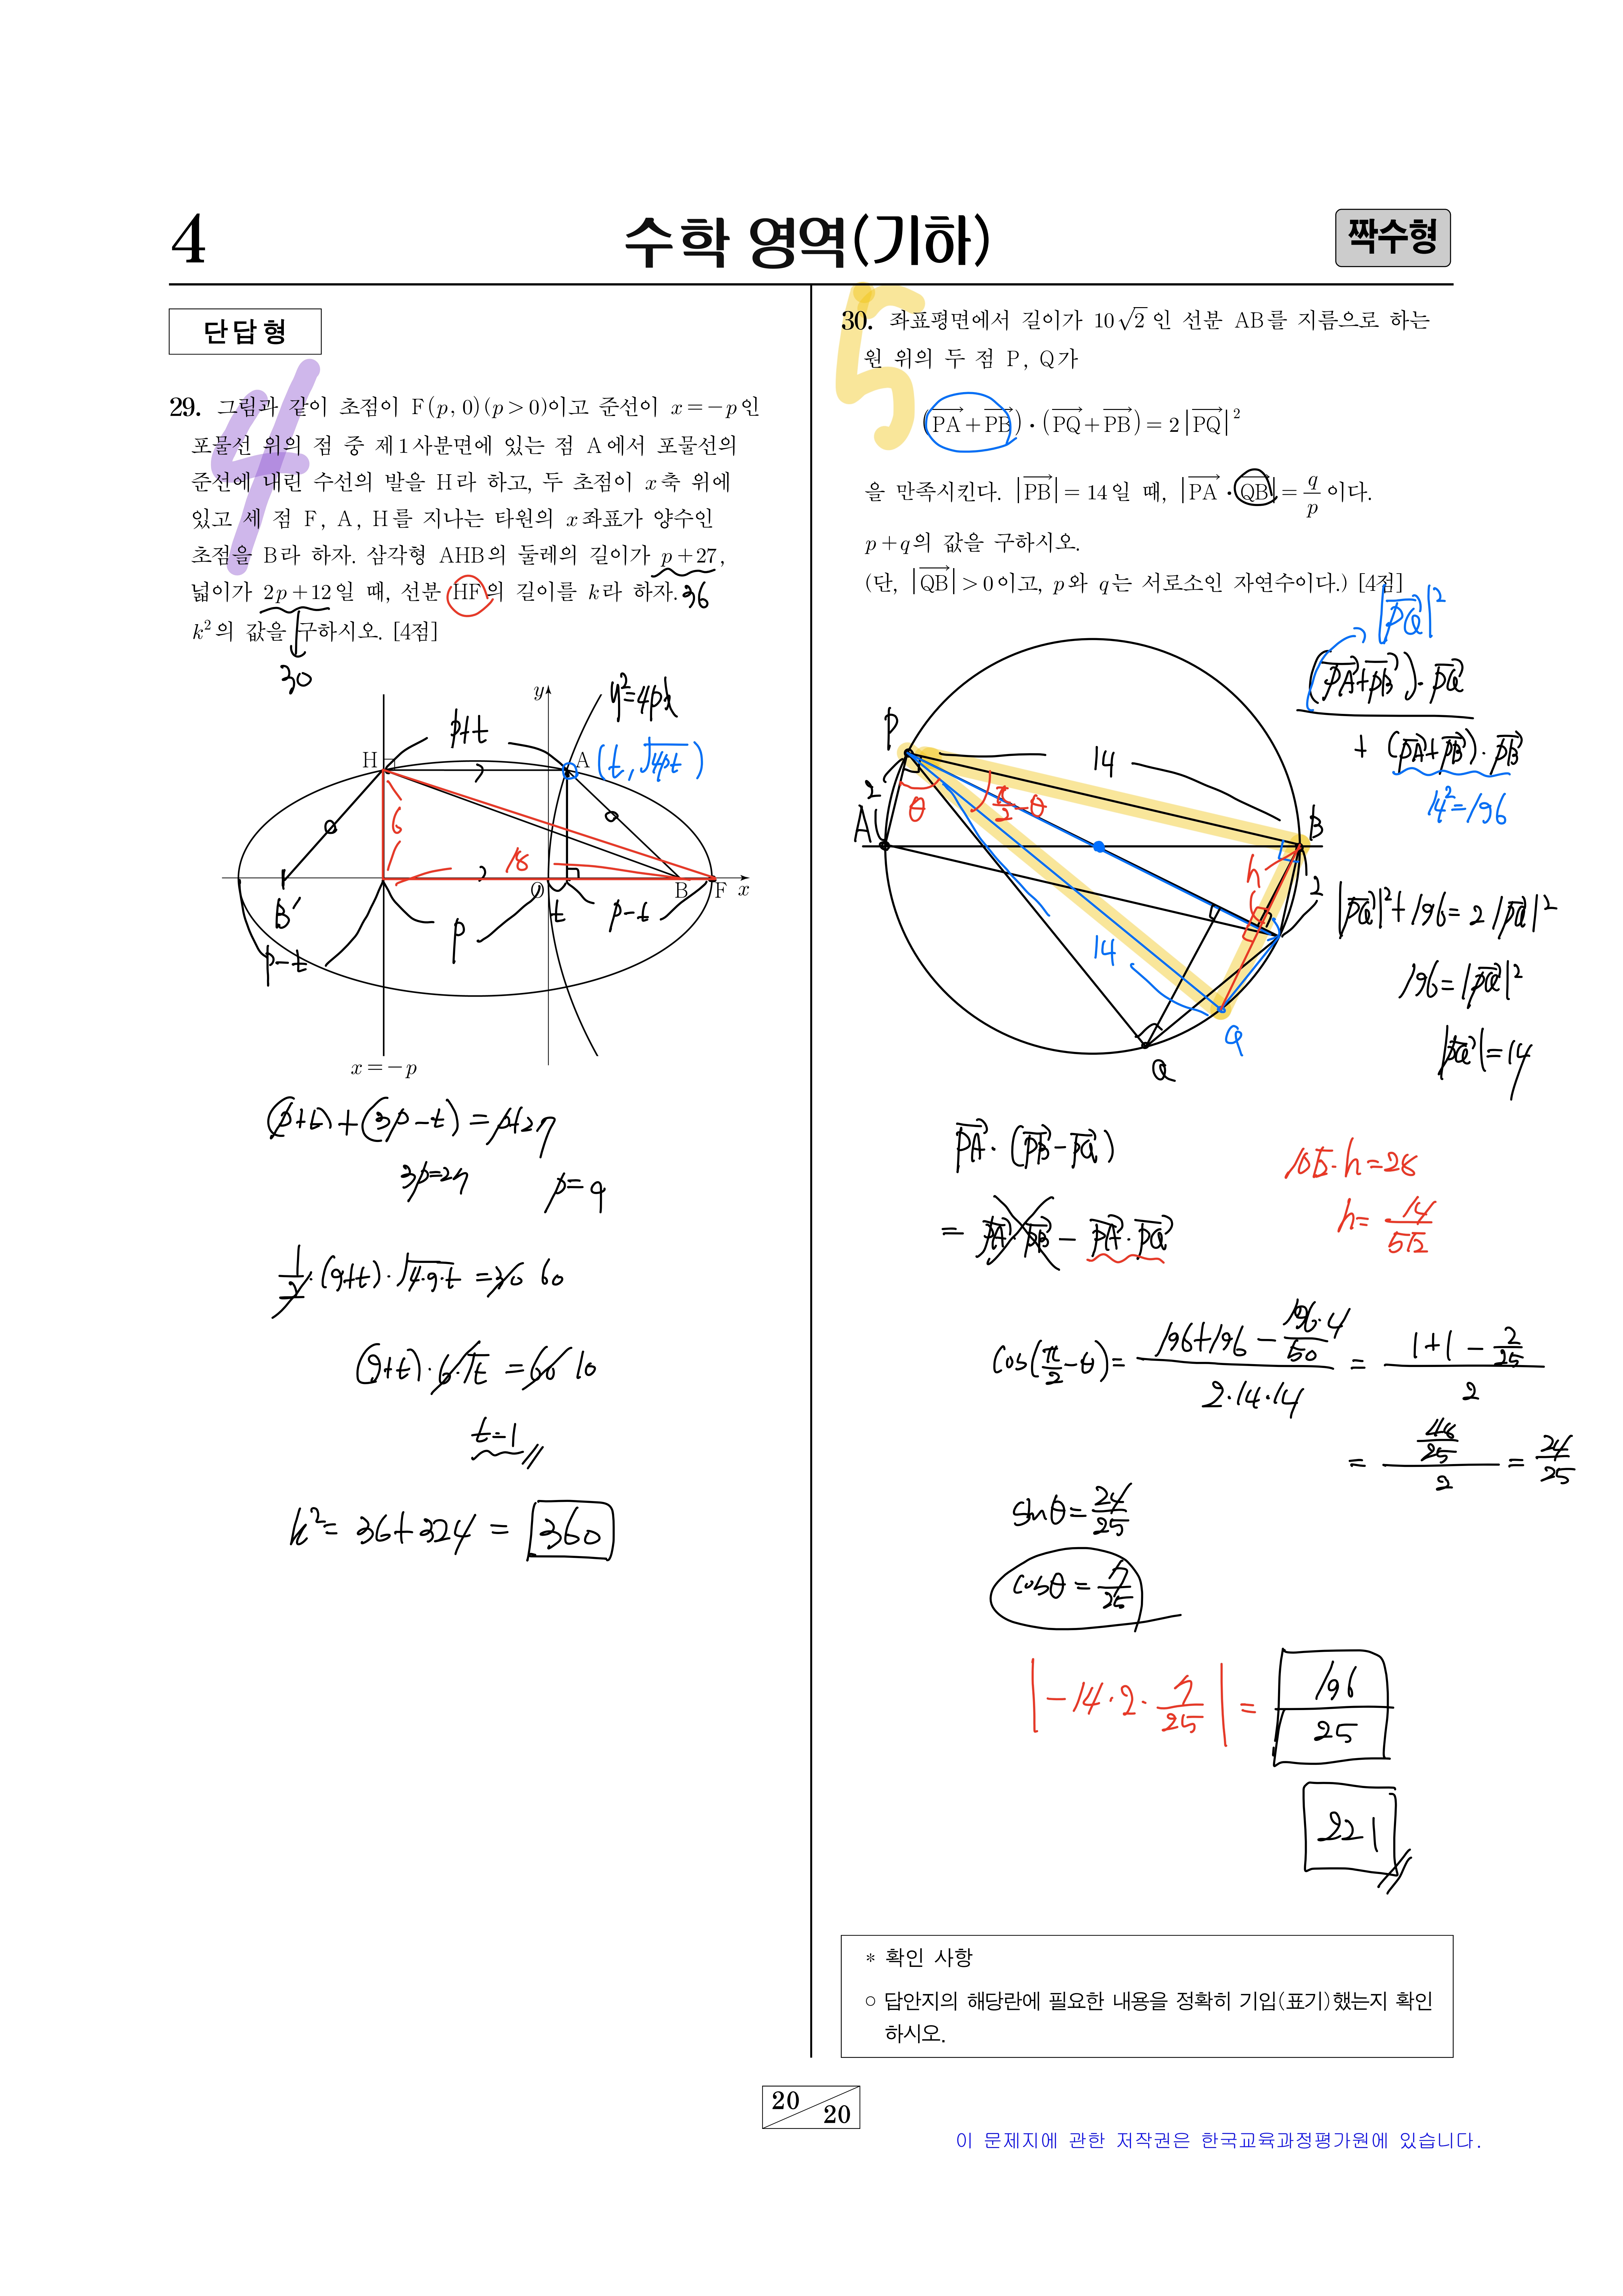 4
수학 영역(기하)
짝수형
단답형
4
29. 그림과 같이 초점이 F(p, 0)(p>0)이고 준선이 x=-p인
포물선 위의 점 중 제1사분면에 있는 점 A에서 포물선의
준선에 내린 수선의 발을 H라 하고, 두 초점이 x축 위에
있고 세 점 F, A, H를 지나는 타원의 x좌표가 양수인
초점을 B라 하자. 삼각형 AHB의 둘레의 길이가 p+27,
넓이가 2p+12일 때, 선분 HF의 길이를 k라 하자. 36
k²의 값을 구하시오. [4점]
30
y
y²=4px
p+t
H
A (t, √4pt)
6
18
O
B F x
B′
t
p-t
p
p-t
x=-p
(p+t)+(3p-t)=p+27
3p=27 p=9
1/2·(9+t)·√4·9·t=30 60
(9+t)·6·√t=60 10
t=1
k²=36+324=360
5
30. 좌표평면에서 길이가 10√2인 선분 AB를 지름으로 하는
원 위의 두 점 P, Q가
(PA+PB)·(PQ+PB)=2|PQ|²
을 만족시킨다. |PB|=14일 때, |PA·QB|=q/p이다.
p+q의 값을 구하시오.
(단, |QB|>0이고, p와 q는 서로소인 자연수이다.) [4점]
|PQ|²
(PA+PB)·PQ
+ (PA+PB)·PB
14²=196
P
14
2
θ
π/2-θ
A
B
h
2
14
Q
Q
|PQ|²+196=2|PQ|²
196=|PQ|²
|PQ|=14
PA·(PB-PQ)
= PA·PB - PA·PQ
10√2·h=28
h=14/5√2
cos(π/2-θ)= (196+196-196·4/50)/(2·14·14) = (1+1-2/25)/2
= (48/25)/2 = 24/25
sinθ=24/25
cosθ=7/25
|-14·2·7/25| = 196/25
221
* 확인 사항
○ 답안지의 해당란에 필요한 내용을 정확히 기입(표기)했는지 확인
하시오.
20
20
이 문제지에 관한 저작권은 한국교육과정평가원에 있습니다.